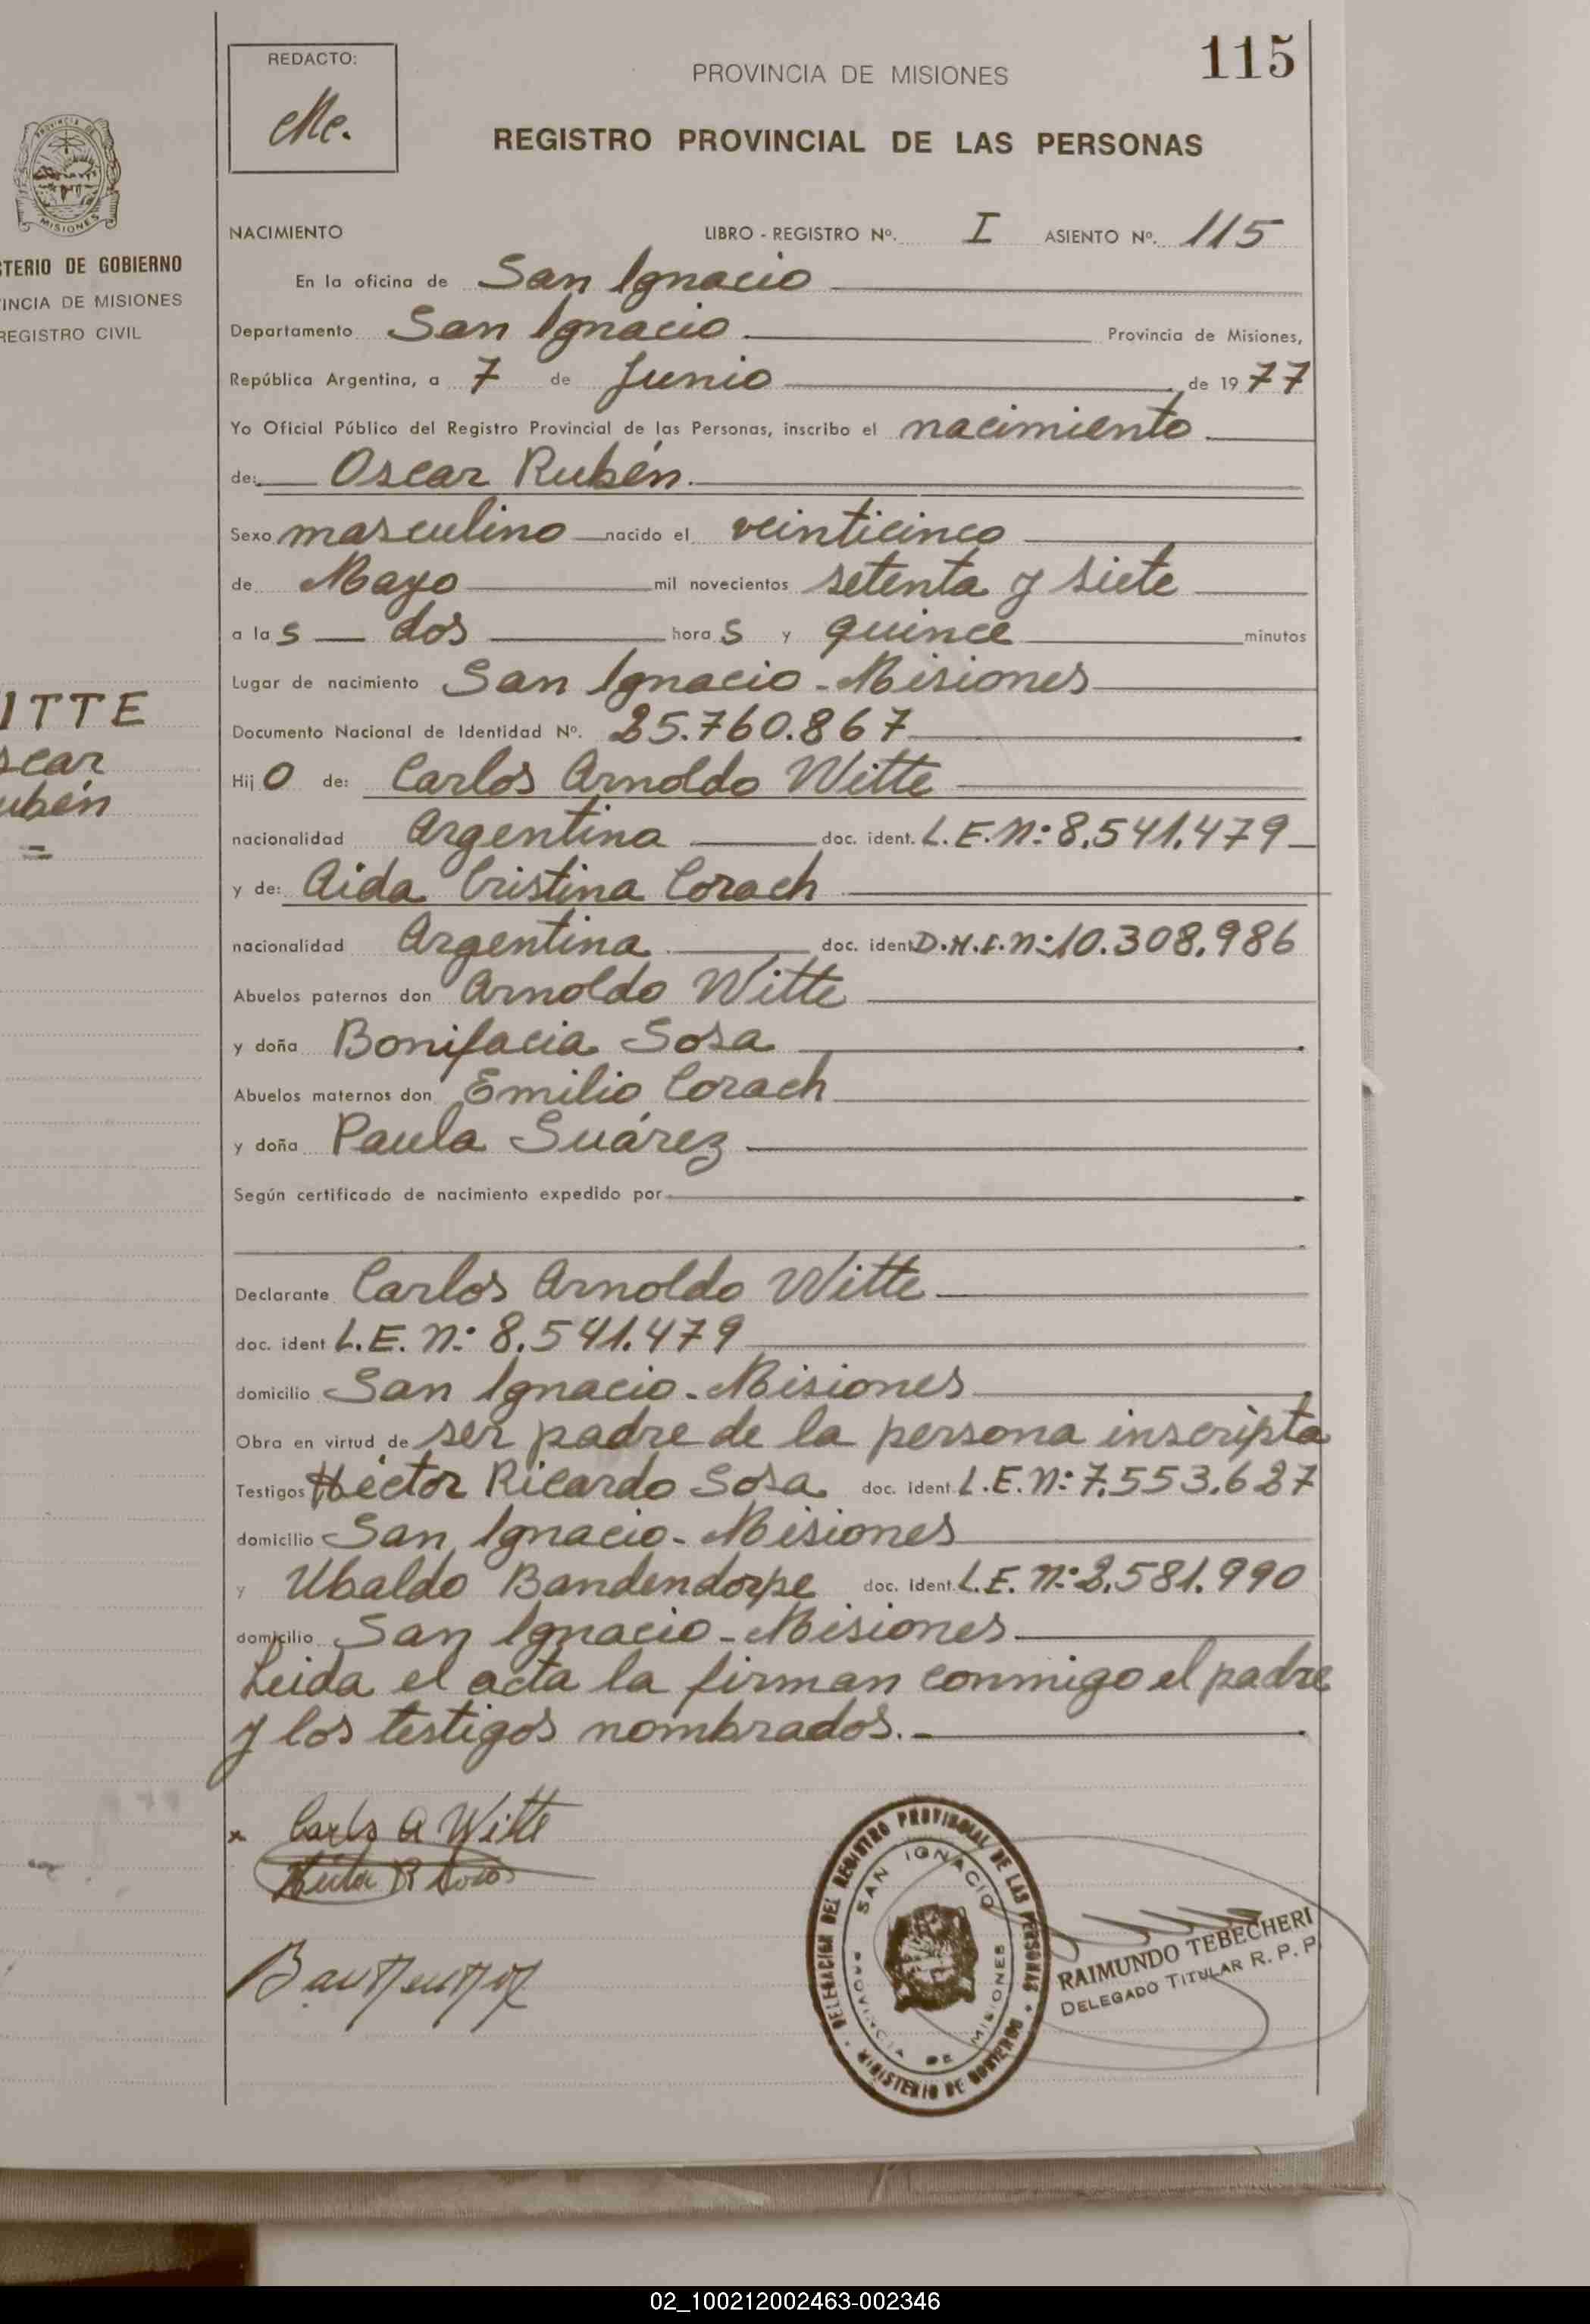 115
REDACTO:
PROVINCIA DE MISIONES
REGISTRO PROVINCIAL DE LAS PERSONAS
PROVINCIA DE
MISIONES
STERIO DE GOBIERNO
VINCIA DE MISIONES
REGISTRO CIVIL
ITTE
scar
ubén
NACIMIENTO LIBRO - REGISTRO Nº. I ASIENTO Nº. 115
En la oficina de San Ignacio
Departamento San Ignacio Provincia de Misiones,
República Argentina, a 7 de Junio de 1977
Yo Oficial Público del Registro Provincial de las Personas, inscribo el nacimiento
de: Oscar Rubén.
Sexo masculino nacido el veinticinco
de Mayo mil novecientos setenta y siete
a las dos horas y quince minutos
Lugar de nacimiento San Ignacio - Misiones
Documento Nacional de Identidad Nº. 25.760.867
Hijo de: Carlos Arnoldo Witte
nacionalidad Argentina doc. ident. L.E.Nº: 8.541.479
y de: Aida Cristina Corach
nacionalidad Argentina doc. ident D.N.I.Nº: 10.308.986
Abuelos paternos don Arnoldo Witte
y doña Bonifacia Sosa
Abuelos maternos don Emilio Corach
y doña Paula Suárez
Según certificado de nacimiento expedido por
Declarante Carlos Arnoldo Witte
doc. ident L.E. Nº: 8.541.479
domicilio San Ignacio - Misiones
Obra en virtud de ser padre de la persona inscripta
Testigos Héctor Ricardo Sosa doc. ident L.E.Nº: 7.553.627
domicilio San Ignacio - Misiones
y Ubaldo Bandendorpe doc. ident. L.E. Nº: 2.581.990
domicilio San Ignacio - Misiones
Leida el acta la firman conmigo el padre
y los testigos nombrados.-
Carlos A Witte
DELEGACION DEL REGISTRO PROVINCIAL DE LAS PERSONAS
SAN IGNACIO
PROVINCIA DE MISIONES
MINISTERIO DE GOBIERNO
RAIMUNDO TEBECHERI
DELEGADO TITULAR R. P. P.
02_100212002463-002346